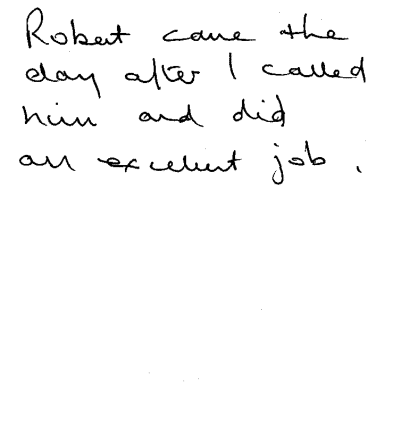 Robert came the
day after I called
him and did
an excellent job.